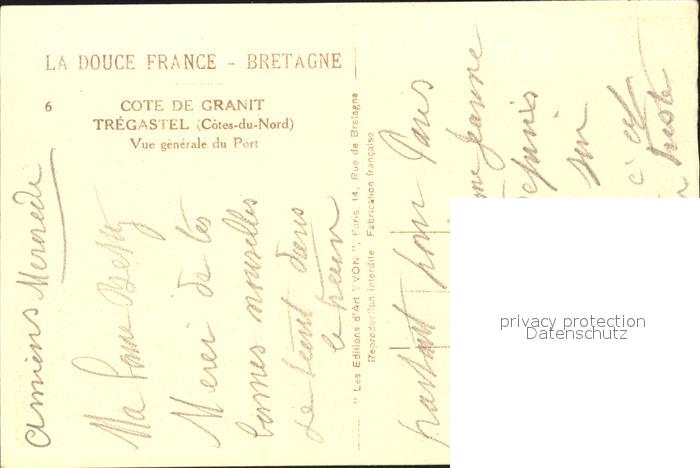 LA DOUCE FRANCE - BRETAGNE
6
COTE DE GRANIT
TRÉGASTEL (Côtes-du-Nord)
Vue générale du Port
Amiens Mercredi
Ma Betsy
Merci de tes
bonnes nouvelles
dans
le train
" Les Editions d'Art "YVON", Paris, 14, Rue de Bretagne
Reproduction interdite Fabrication française
partant pour Paris
Jeanne
depuis
sur
c'est
triste
privacy protection
Datenschutz